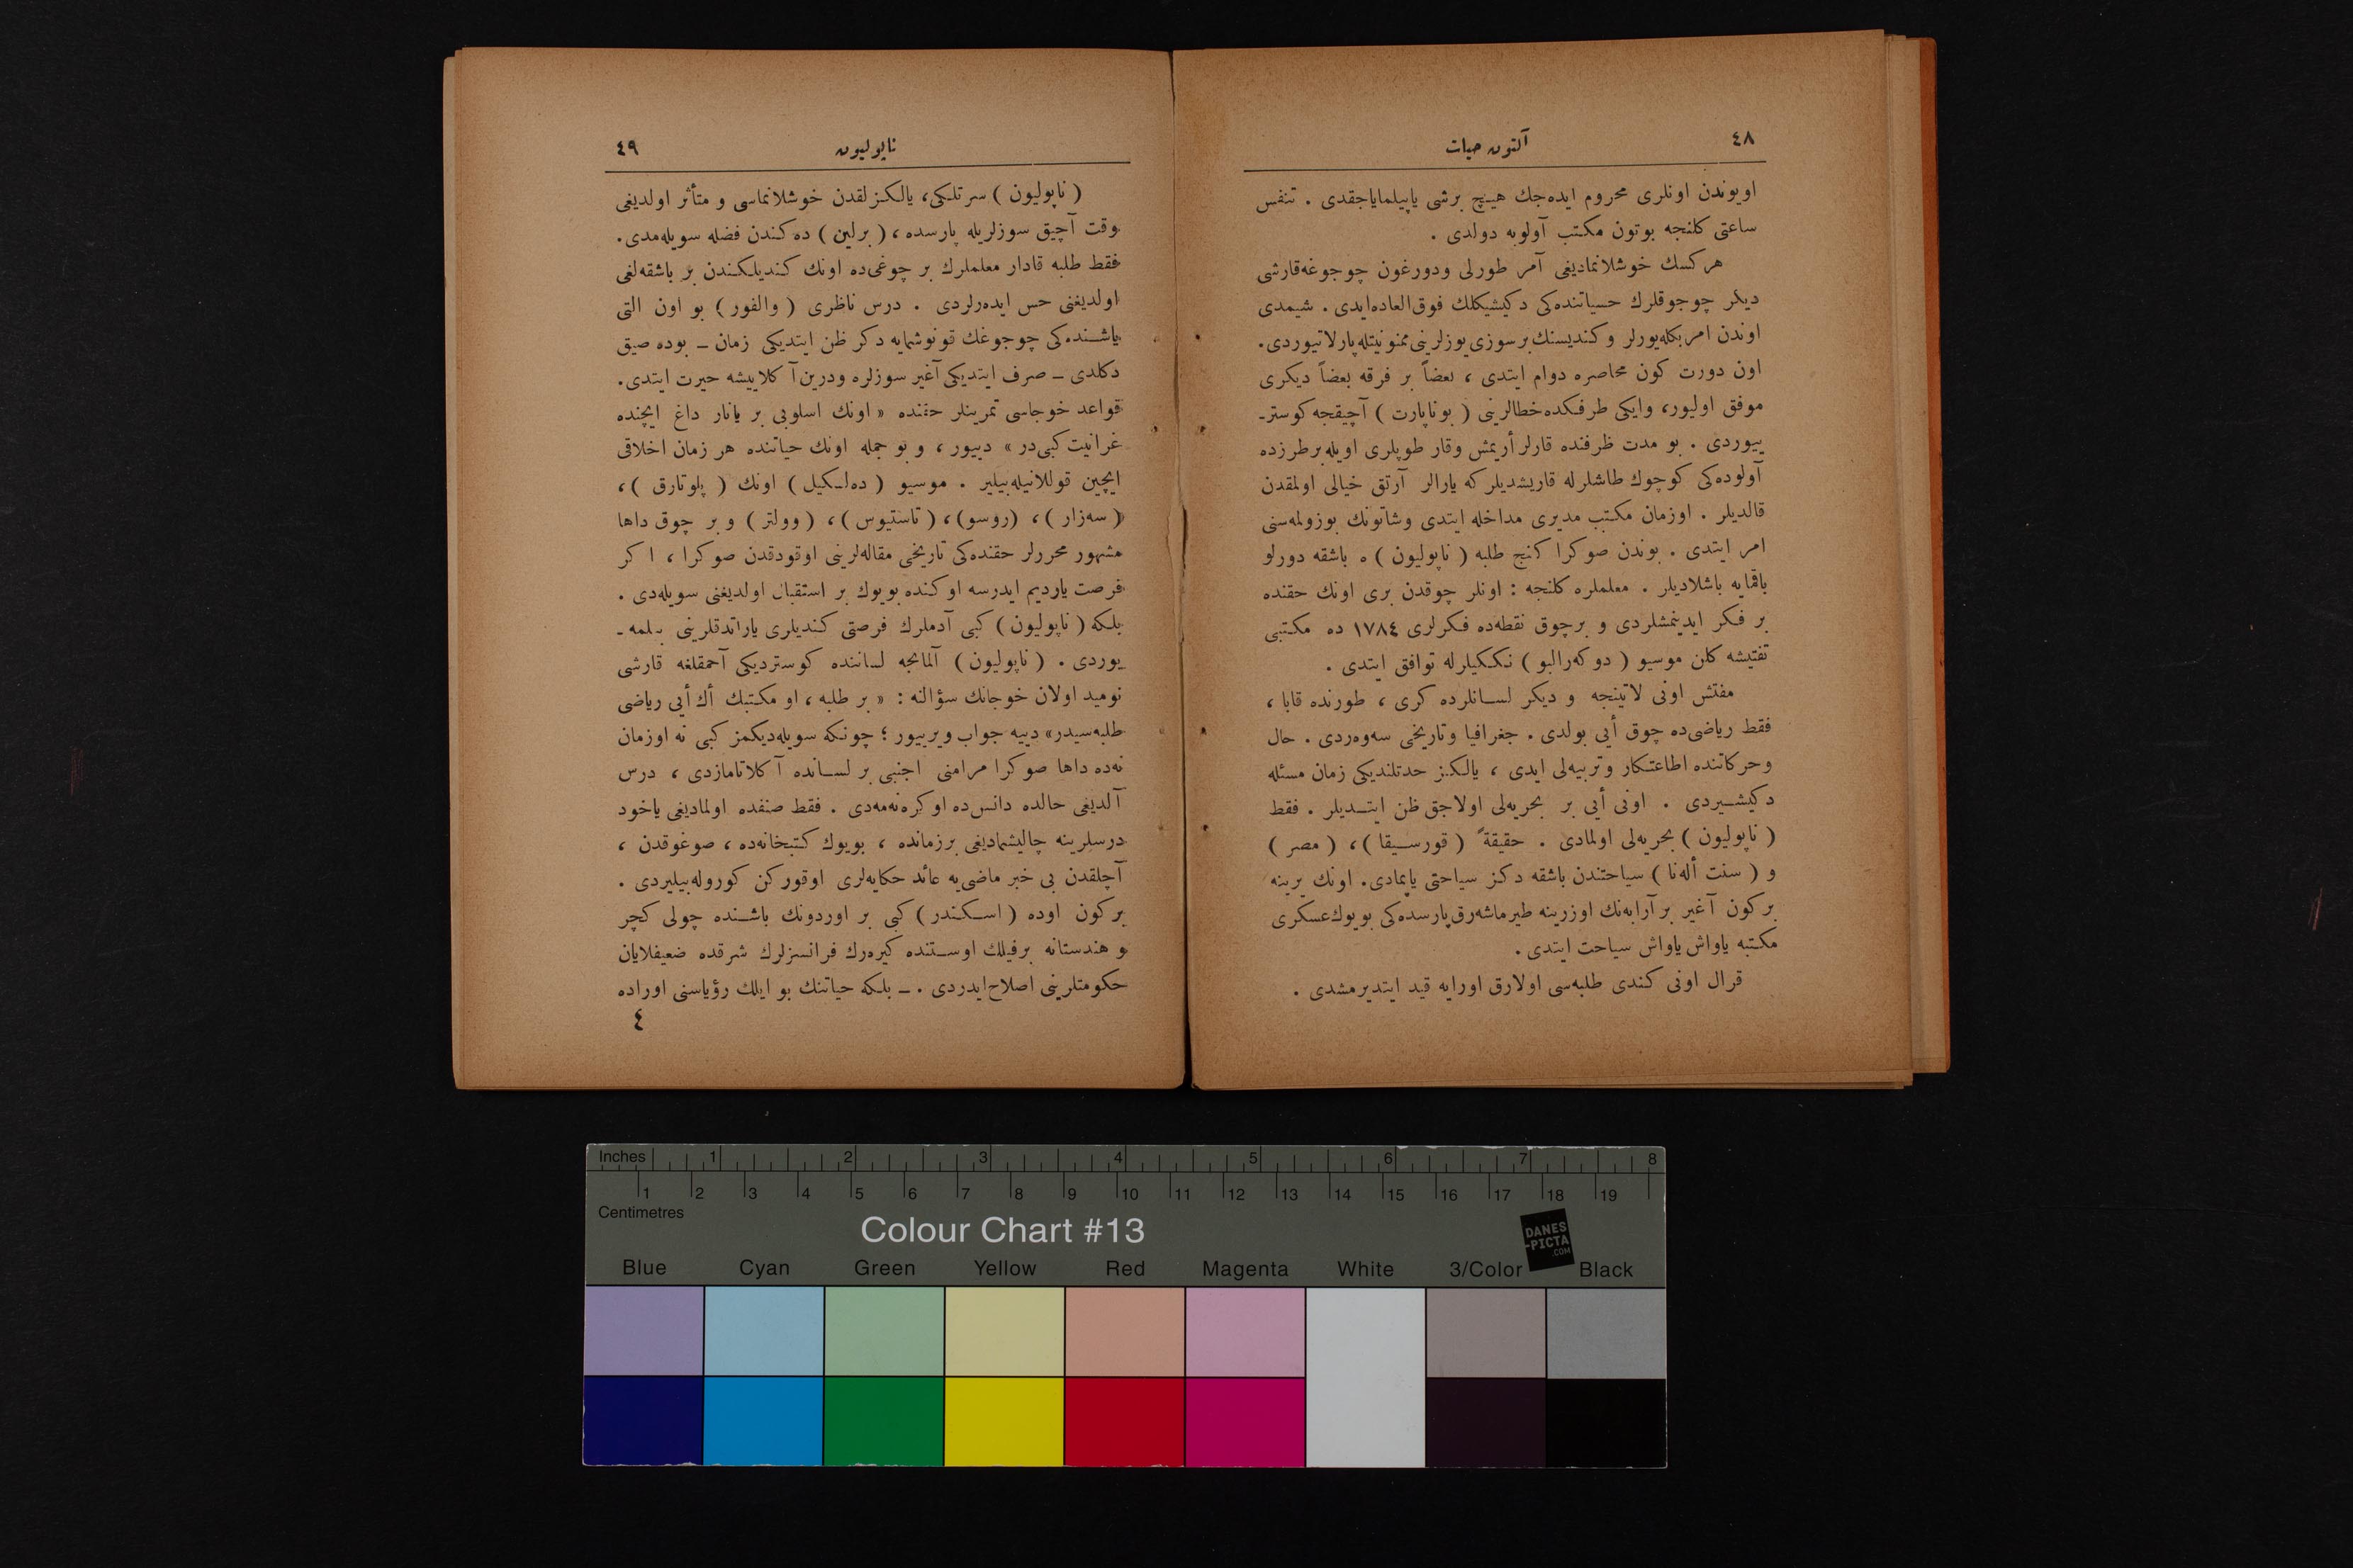 ٤٨
آلتون حيات
اويوندن اونلرى محروم ايده‌جك هيچ برشى ياپيلماياجقدى . تنفس
ساعتى كلنجه بوتون مكتب آولويه دولدى .
هركسك خوشلانماديغى آمر طورلى ودورغون چوجوغه قارشى
ديكر چوجوقلرك حسياتنده‌كى دكيشيكلك فوق‌العاده‌ايدى . شيمدى
اوندن امر بكله‌يورلر و كنديسنك برسوزى يوزلرينى ممنونيتله پارلاتيوردى .
اون دورت كون محاصره دوام ايتدى ، بعضاً بر فرقه بعضاً ديكرى
موفق اوليور، وايكى طرفكده خطالرينى ( بوناپارت ) آچيقجه كوستر-
ييوردى . بو مدت ظرفنده قارلر أريمش وقار طوپلرى اويله برطرزده
آولوده‌كى كوچوك طاشلرله قاريشديلر كه يارالر آرتق خيالى اولمقدن
قالديلر . اوزمان مكتب مديرى مداخله ايتدى وشاتونك بوزولمه‌سنى
امر ايتدى . بوندن صوكرا كنج طلبه ( ناپوليون ) ه باشقه دورلو
باقمايه باشلاديلر . معلملره كلنجه : اونلر چوقدن برى اونك حقنده
بر فكر ايدينمشلردى و برچوق نقطه‌ده فكرلرى ١٧٨٤ ده مكتبى
تفتيشه كلن موسيو ( دو كه‌راليو ) نككيلرله توافق ايتدى .
مفتش اونى لاتينجه و ديكر لسانلرده كرى ، طورنده قابا ،
فقط رياضى‌ده چوق أيى بولدى . جغرافيا وتاريخى سه‌وه‌ردى . حال
وحركاتنده اطاعتكار وتربيه‌لى ايدى ، يالكز حدتلنديكى زمان مسئله
دكيشيردى . اونى أيى بر بحريه‌لى اولاجق ظن ايتديلر . فقط
( ناپوليون ) بحريه‌لى اولمادى . حقيقةً ( قورسيقا ) ، ( مصر )
و ( سنت ألەنا ) سياحتندن باشقه دكز سياحتى ياپمادى . اونك يرينه
بركون آغير بر آرابه‌نك اوزرينه طيرماشه‌رق پارسده‌كى بويوك عسكرى
مكتبه ياواش ياواش سياحت ايتدى .
قرال اونى كندى طلبه‌سى اولارق اورايه قيد ايتديرمشدى .
ناپوليون
٤٩
( ناپوليون ) سرتلكى، يالكزلقدن خوشلانماسى و متأثر اولديغى
وقت آچيق سوزلريله پارسده ، ( برلين ) ده‌كندن فضله سويله‌مدى .
فقط طلبه قادار معلملرك بر چوغى‌ده اونك كنديلكندن بر باشقه‌لغى
اولديغنى حس ايده‌رلردى . درس ناظرى ( والفور ) بو اون التى
ياشنده‌كى چوجوغك قونوشمايه دكر ظن ايتديكى زمان ــ بوده صيق
دكلدى ــ صرف ايتديكى آغير سوزلره ودرين آكلاييشه حيرت ايتدى .
قواعد خوجاسى تمرينلر حقنده « اونك اسلوبى بر يانار داغ ايچنده
غرانيت كبى‌در » دييور ، و بو جمله اونك حياتنده هر زمان اخلاقى
ايچين قوللانيله‌بيلير . موسيو ( ده‌لكيل ) اونك ( پلوتارق ) ،
( سه‌زار ) ، (روسو) ، ( تاستيوس ) ، ( وولتر ) و بر چوق داها
مشهور محررلر حقنده‌كى تاريخى مقاله‌لرينى اوقودقدن صوكرا ، اكر
فرصت يارديم ايدرسه اوكنده بويوك بر استقبال اولديغنى سويله‌دى .
بلكه ( ناپوليون ) كبى آدملرك فرصتى كنديلرى ياراتدقلرينى بيلمه -
يوردى . ( ناپوليون ) آلمانجه لساننده كوسترديكى آحمقلغه قارشى
نوميد اولان خوجانك سؤالنه : « بر طلبه ، او مكتبك أك أيى رياضى
طلبه‌سيدر» دييه جواب ويرييور ؛ چونكه سويله‌ديكمز كبى نه اوزمان
نه‌ده داها صوكرا مرامنى اجنبى بر لسانده آكلاتامازدى ، درس
آلديغى حالده دانس‌ده اوكره‌نه‌مه‌دى . فقط صنفده اولماديغى ياخود
درسلرينه چاليشماديغى برزمانده ، بويوك كتبخانه‌ده ، صوغوقدن ،
آچلقدن بى خبر ماضى‌يه عائد حكايه‌لرى اوقوركن كوروله‌بيليردى .
بركون اوده ( اسكندر ) كبى بر اوردونك باشنده چولى كچر
و هندستانه برفيلك اوستنده كيره‌رك فرانسزلرك شرقده ضعيفلايان
حكومتلرينى اصلاح‌ايدردى . ــ بلكه حياتنك بو ايلك رؤياسنى اوراده
٤
Inches 1 2 3 4 5 6 7 8
1 2 3 4 5 6 7 8 9 10 11 12 13 14 15 16 17 18 19
Centimetres
Colour Chart #13
DANES
-PICTA
.COM
Blue Cyan Green Yellow Red Magenta White 3/Color Black